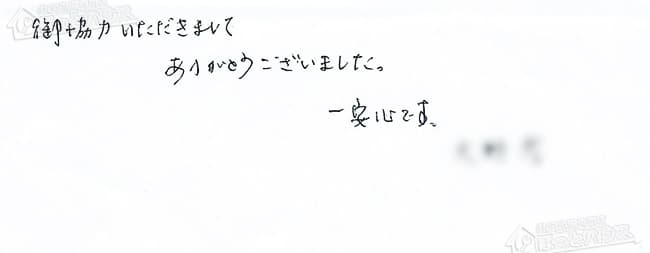 御協力いただきまして
ありがとうございました。
一安心です。